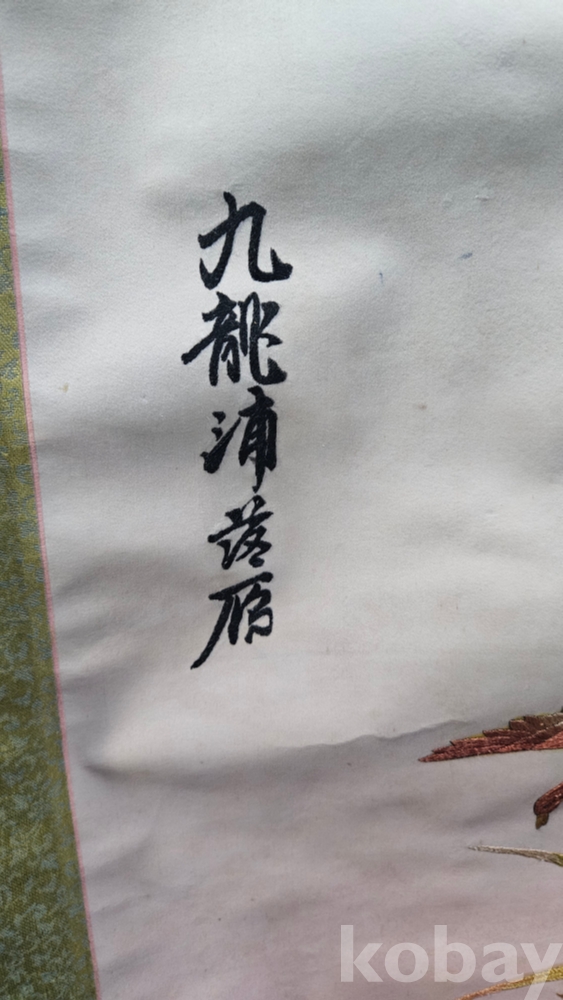 九龍浦落雁
kobay